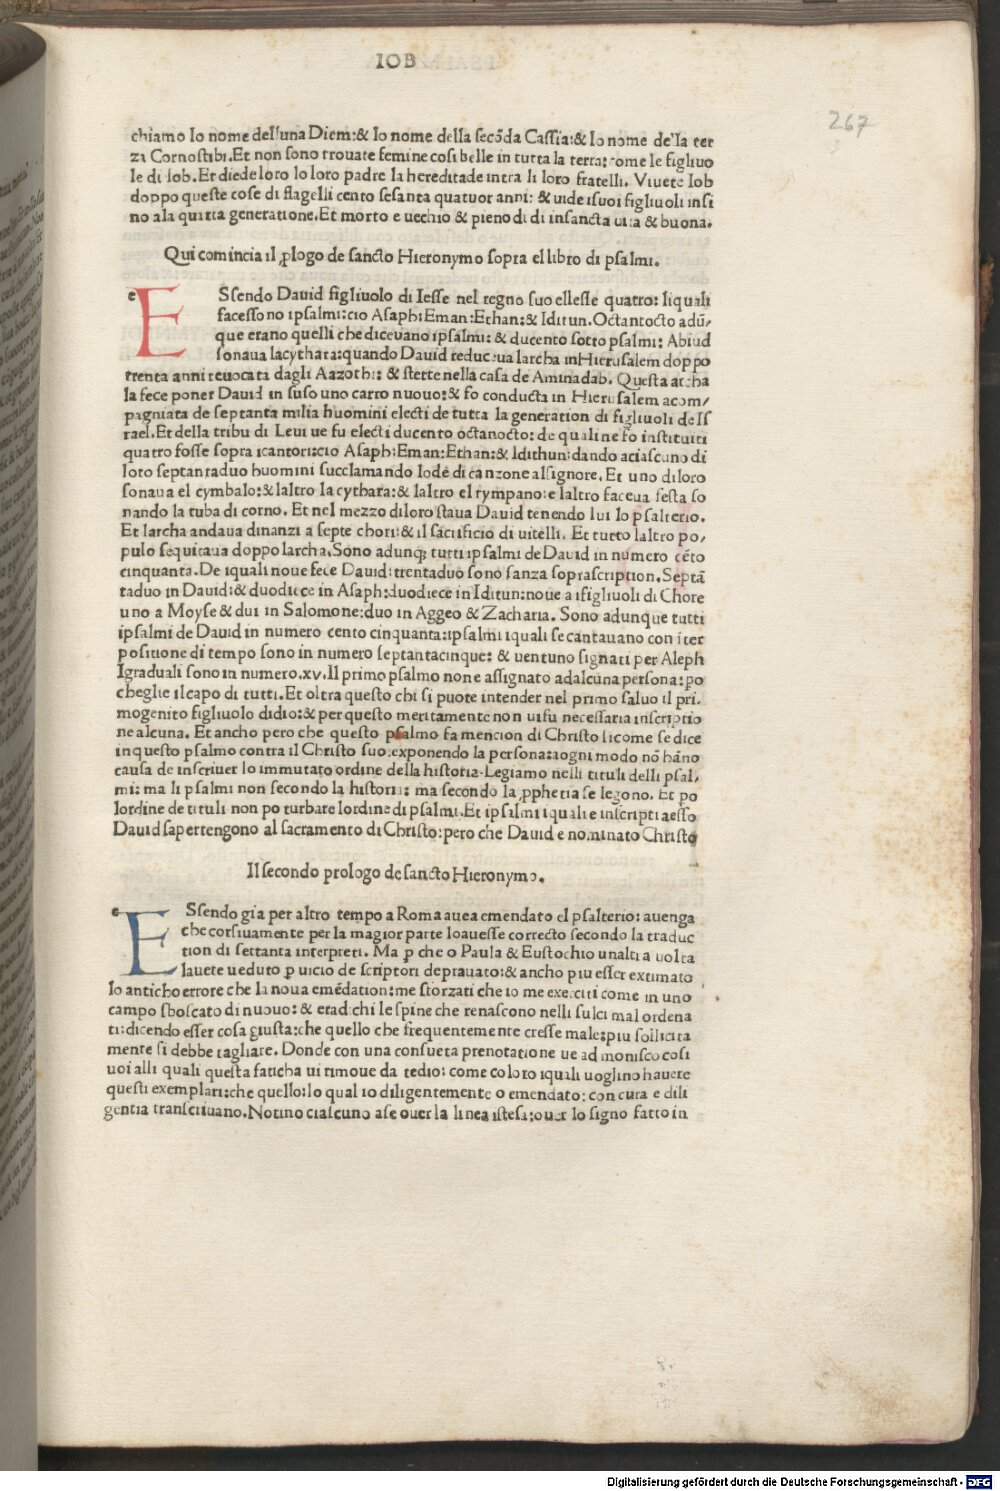 IOB
267
chiamo lo nome delluna Diem:& lo nome della secõda Cassia:& lo nome della ter
za Cornostibi.Et non sono trouate femine cosi belle in tutta la terra:come le figliuo
le di Iob.Et diede loro lo loro padre la hereditade intra li loro fratelli. Viuete Iob
doppo queste cose di flagelli cento sesanta quatuor anni: & uide isuoi figliuoli insi
no ala quarta generatione.Et morto e uechio & pieno di di in sancta uita & buona.
Qui comincia il ꝓlogo de sancto Hieronymo sopra el libro di psalmi.
ESsendo Dauid figliuolo di Iesse nel regno suo ellesse quatro: liquali
facesso no ipsalmi:cio Asaph:Eman:Ethan:& Iditun.Octantocto adũ/
que erano quelli che diceuano ipsalmi: & ducento sotto psalmi: Abiud
sonaua lacythara:quando Dauid reduceua larcha inHierusalem doppo
trenta anni reuocata dagli Aazothi: & stette nella casa de Aminadab. Questa archa
la fece poner Dauid in suso uno carro nuouo:& fo conducta in Hierusalem acom/
pagniata de septanta milia huomini electi de tutta la generation di figliuoli de Is
rael.Et della tribu di Leui ue fu electi ducento octanocto: de quali ne fo instituiti
quatro fosse sopra icantori:cio Asaph:Eman:Ethan:& Idithun:dando aciascuno di
loro septantaduo huomini succlamando lode di canzone alsignore. Et uno diloro
sonaua el cymbalo:& laltro la cythara:& laltro el tympano:e laltro faceua festa so
nando la tuba di corno. Et nel mezzo diloro staua Dauid tenendo lui lo psalterio.
Et larcha andaua dinanzi a septe chori:& il sacrificio di uitelli. Et tutto laltro po/
pulo sequitaua doppo larcha.Sono adunq; tutti ipsalmi de Dauid in numero cẽto
cinquanta.De iquali noue fece Dauid:trentaduo sono sanza soprascription.Septã
taduo in Dauid:& duodiece in Asaph:duodiece in Iditun:noue a ifigliuoli di Chore
uno a Moyse & dui in Salomone:duo in Aggeo & Zacharia. Sono adunque tutti
ipsalmi de Dauid in numero cento cinquanta:ipsalmi iquali se cantauano con iter
positione di tempo sono in numero septantacinque: & uentuno signati per Aleph
Igraduali sono in numero.xv.Il primo psalmo non e assignato adalcuna persona:po
cheglie ilcapo di tutti.Et oltra questo chi si puote intender nel primo saluo il pri.
mogenito figliuolo didio:& per questo meritamente non uifu necessaria inscriptio
ne alcuna. Et ancho pero che questo psalmo fa mencion di Christo sicome se dice
in questo psalmo contra il Christo suo:exponendo la persona:aogni modo nõ hãno
causa de inscriuer lo immutato ordine della historia.Legiamo nelli tituli delli psal,
mi: ma li psalmi non secondo la historia: ma secondo la ꝓphetia se legono. Et po
lordine de tituli non po turbare lordine di psalmi.Et ipsalmi iquali e inscripti aesso
Dauid sapertengono al sacramento di Christo:pero che Dauid e nominato Christo
Il secondo prologo de sancto Hieronymo.
ESsendo gia per altro tempo a Roma auea emendato el psalterio: auenga
che corsiuamente per la magior parte loauesse correcto secondo la traduc
tion di settanta interpreti. Ma ꝑ che o Paula & Eustochio unaltra uolta
lauete ueduto ꝑ uicio de scriptori deprauato:& ancho piu esser extimato
lo anticho errore che la noua emẽdation:me sforzati che io me exerciti come in uno
campo sboscato di nuouo: & eradichi le spine che renascono nelli sulci mal ordena
ti:dicendo esser cosa giusta:che quello che frequentemente cresse male:piu sollicita
mente si debbe tagliare. Donde con una consueta prenotatione ue admonisco cosi
uoi alli quali questa faticha ui rimoue da tedio: come coloro iquali uoglino hauere
questi exemplari:che quello:lo qual io diligentemente o emendato: con cura e dili
gentia transcriuano.Notino ciascuno a se ouer la linea istesa:ouer lo signo fatto in
Digitalisierung gefördert durch die Deutsche Forschungsgemeinschaft - DFG